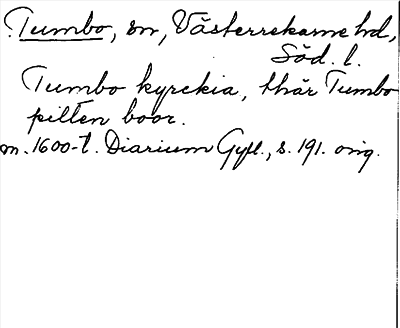 Tumbo, sn, Västerrekarne hd,
Söd. l.
Tumbo kyrckia, thär Tumbo
pilten boor.
m. 1600-t. Diarium Gyll., s. 191. orig.